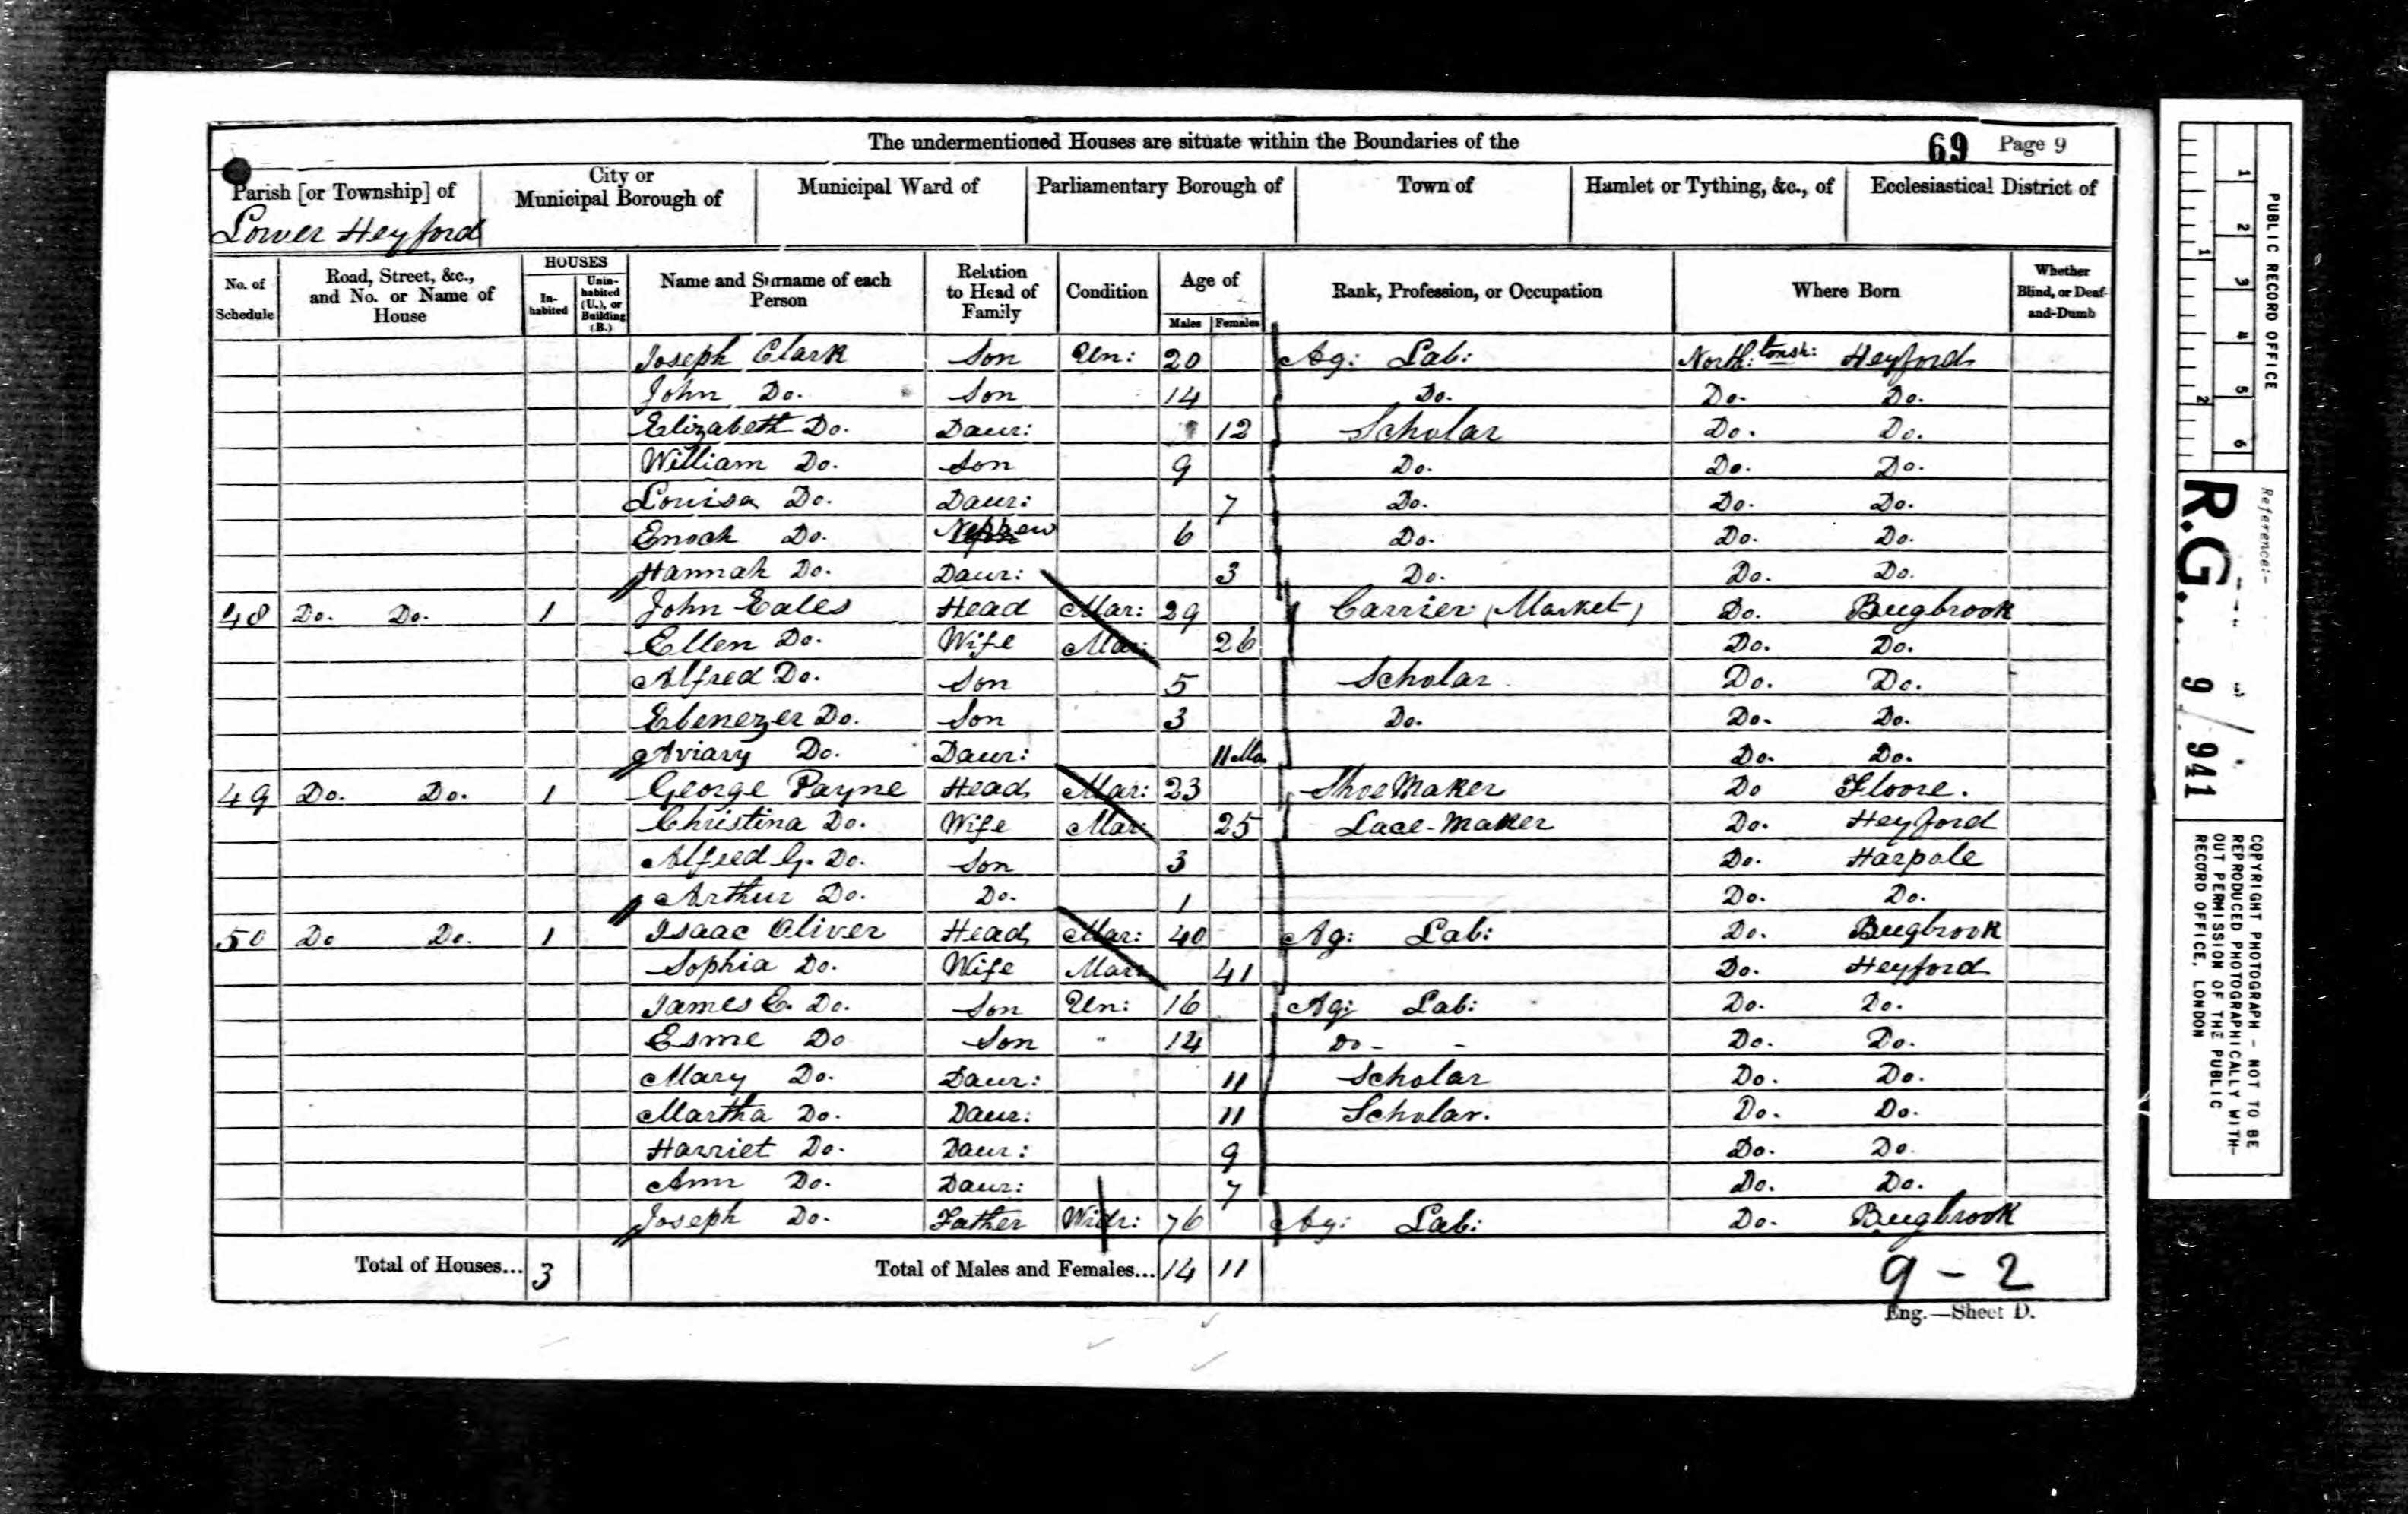 The undermentioned Houses are situate within the Boundaries of the 69 Page 9
Parish [or Township] of City or Municipal Borough of Municipal Ward of Parliamentary Borough of Town of Hamlet or Tything, &c., of Ecclesiastical District of
Lower Heyford
No. of Schedule Road, Street, &c., and No. or Name of House HOUSES In-habited Unin-habited (U.), or Building (B.) Name and Surname of each Person Relation to Head of Family Condition Age of Males Females Rank, Profession, or Occupation Where Born Whether Blind, or Deaf-and-Dumb
Joseph Clark Son Un: 20 Ag: Lab: North:tonsh: Heyford
John Do. Son 14 Do. Do. Do.
Elizabeth Do. Daur: 12 Scholar Do. Do.
William Do. Son 9 Do. Do. Do.
Louisa Do. Daur: 7 Do. Do. Do.
Enoch Do. Nephew 6 Do. Do. Do.
Hannah Do. Daur: 3 Do. Do. Do.
48 Do. Do. 1 John Eales Head Mar: 29 Carrier (Market) Do. Bugbrook
Ellen Do. Wife Mar: 26 Do. Do.
Alfred Do. Son 5 Scholar Do. Do.
Ebenezer Do. Son 3 Do. Do. Do.
Aviary Do. Daur: 11 Mo. Do. Do.
49 Do. Do. 1 George Payne Head Mar: 23 Shoe Maker Do Floore.
Christina Do. Wife Mar: 25 Lace-Maker Do. Heyford
Alfred G. Do. Son 3 Do. Harpole
Arthur Do. Do. 1 Do. Do.
50 Do Do. 1 Isaac Oliver Head Mar: 40 Ag: Lab: Do. Bugbrook
Sophia Do. Wife Mar: 41 Do. Heyford
James E. Do. Son Un: 16 Ag: Lab: Do. Do.
Esme Do Son " 14 Do - - Do. Do.
Mary Do. Daur: 11 Scholar Do. Do.
Martha Do. Daur: 11 Scholar. Do. Do.
Harriet Do. Daur: 9 Do. Do.
Ann Do. Daur: 7 Do. Do.
Joseph Do. Father Widr: 76 Ag: Lab: Do. Bugbrook
Total of Houses... 3 Total of Males and Females... 14 11 9 - 2
Eng.—Sheet D.
PUBLIC RECORD OFFICE
1 2 3 4 5 6
1 2
Reference:-
R.G. 9/941
COPYRIGHT PHOTOGRAPH - NOT TO BE
REPRODUCED PHOTOGRAPHICALLY WITH-
OUT PERMISSION OF THE PUBLIC
RECORD OFFICE, LONDON